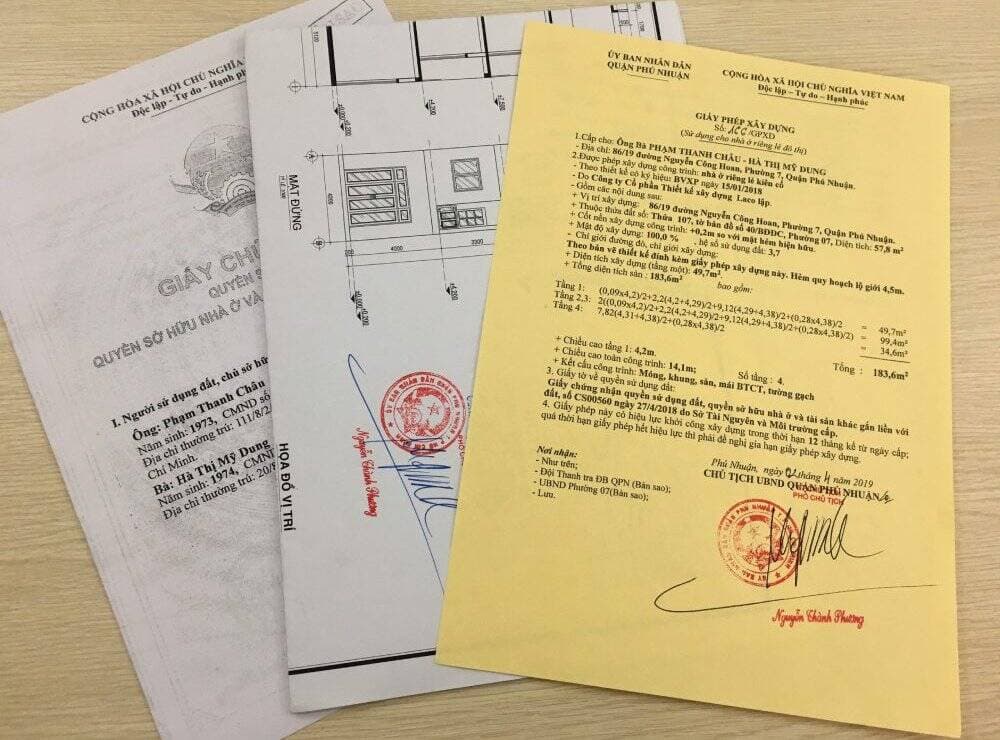 CỘNG HÒA XÃ HỘI CHỦ NGHĨA
Độc lập - Tự do - Hạnh
GIẤY
QUYỀN
QUYỀN SỞ HỮU NHÀ Ở VÀ
I. Người sử dụng đất, chủ sở
Ông: Phạm Thanh Châu
Năm sinh: 1973, CMND số
Địa chỉ thường trú: 111/8/2
Chí Minh
Bà: Hà Thị Mỹ Dung
Năm sinh: 1974, CMND
Địa chỉ thường trú: 20/8
MẶT ĐỨNG
4000
3000
HỌA ĐỒ VỊ TRÍ
Nguyễn Thành Phương
ỦY BAN NHÂN DÂN
QUẬN PHÚ NHUẬN
CỘNG HÒA XÃ HỘI CHỦ NGHĨA VIỆT NAM
Độc lập – Tự do – Hạnh phúc
GIẤY PHÉP XÂY DỰNG
Số: /GPXD
(Sử dụng cho nhà ở riêng lẻ đô thị)
1.Cấp cho: Ông Bà PHẠM THANH CHÂU - HÀ THỊ MỸ DUNG
- Địa chỉ: 86/19 đường Nguyễn Công Hoan, Phường 7, Quận Phú Nhuận.
2.Được phép xây dựng công trình: nhà ở riêng lẻ kiên cố
- Theo thiết kế có ký hiệu: BVXP ngày 15/01/2018
- Do Công ty Cổ phần Thiết kế xây dựng Laco lập.
- Gồm các nội dung sau:
+ Vị trí xây dựng: 86/19 đường Nguyễn Công Hoan, Phường 7, Quận Phú Nhuận.
+ Thuộc thửa đất số: Thửa 107, tờ bản đồ số 40/BĐĐC, Phường 07, Diện tích: 57,8 m²
+ Cốt nền xây dựng công trình: +0,2m so với mặt hẻm hiện hữu.
+ Mật độ xây dựng: 100,0 % , hệ số sử dụng đất: 3,7
- Chỉ giới đường đỏ, chỉ giới xây dựng:
Theo bản vẽ thiết kế đính kèm giấy phép xây dựng này. Hẻm quy hoạch lộ giới 4,5m.
+ Diện tích xây dựng (tầng một): 49,7m².
+ Tổng diện tích sàn : 183,6m² bao gồm:
Tầng 1: (0,09x4,2)/2+2,2(4,2+4,29)/2+9,12(4,29+4,38)/2+(0,28x4,38)/2 = 49,7m²
Tầng 2,3: 2((0,09x4,2)/2+2,2(4,2+4,29)/2+9,12(4,29+4,38)/2+(0,28x4,38)/2) = 99,4m²
Tầng 4: 7,82(4,31+4,38)/2+(0,28x4,38)/2 = 34,6m²
Tổng : 183,6m²
+ Chiều cao tầng 1: 4,2m.
+ Chiều cao toàn công trình: 14,1m; Số tầng : 4.
+ Kết cấu công trình: Móng, khung, sàn, mái BTCT, tường gạch
3. Giấy tờ về quyền sử dụng đất:
Giấy chứng nhận quyền sử dụng đất, quyền sở hữu nhà ở và tài sản khác gắn liền với
đất, số CS00560 ngày 27/4/2018 do Sở Tài Nguyên và Môi trường cấp.
4. Giấy phép này có hiệu lực khởi công xây dựng trong thời hạn 12 tháng kể từ ngày cấp;
quá thời hạn giấy phép hết hiệu lực thì phải đề nghị gia hạn giấy phép xây dựng.
Nơi nhận:
- Như trên;
- Đội Thanh tra ĐB QPN (Bản sao);
- UBND Phường 07(Bản sao);
- Lưu.
Phú Nhuận, ngày 02 tháng 4 năm 2019
CHỦ TỊCH UBND QUẬN PHÚ NHUẬN
PHÓ CHỦ TỊCH
Nguyễn Thành Phương